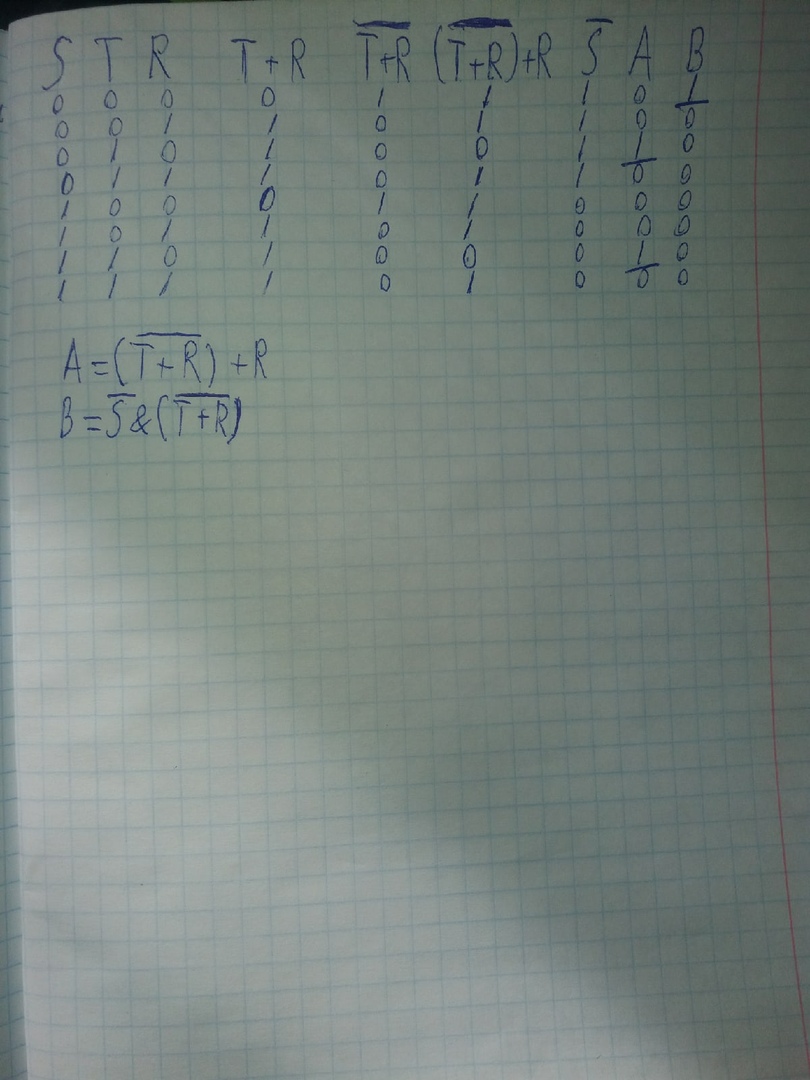 S T R T+R T̅+̅R̅ (T̅+̅R̅)+R S̅ A B
0 0 0 0 1 1 1 0 1
0 0 1 1 0 1 1 0 0
0 1 0 1 0 0 1 1 0
0 1 1 1 0 1 1 0 0
1 0 0 0 1 1 0 0 0
1 0 1 1 0 1 0 0 0
1 1 0 1 0 0 0 1 0
1 1 1 1 0 1 0 0 0
A=(T̅+̅R̅)+R
B=S̅&(T̅+̅R̅)